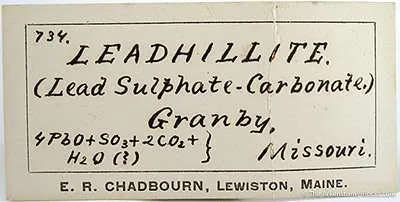 734.
LEADHILLITE.
(Lead Sulphate-Carbonate.)
Granby,
4PbO+SO3+2CO2+
H2O (?) } Missouri.
E. R. CHADBOURN, LEWISTON, MAINE.